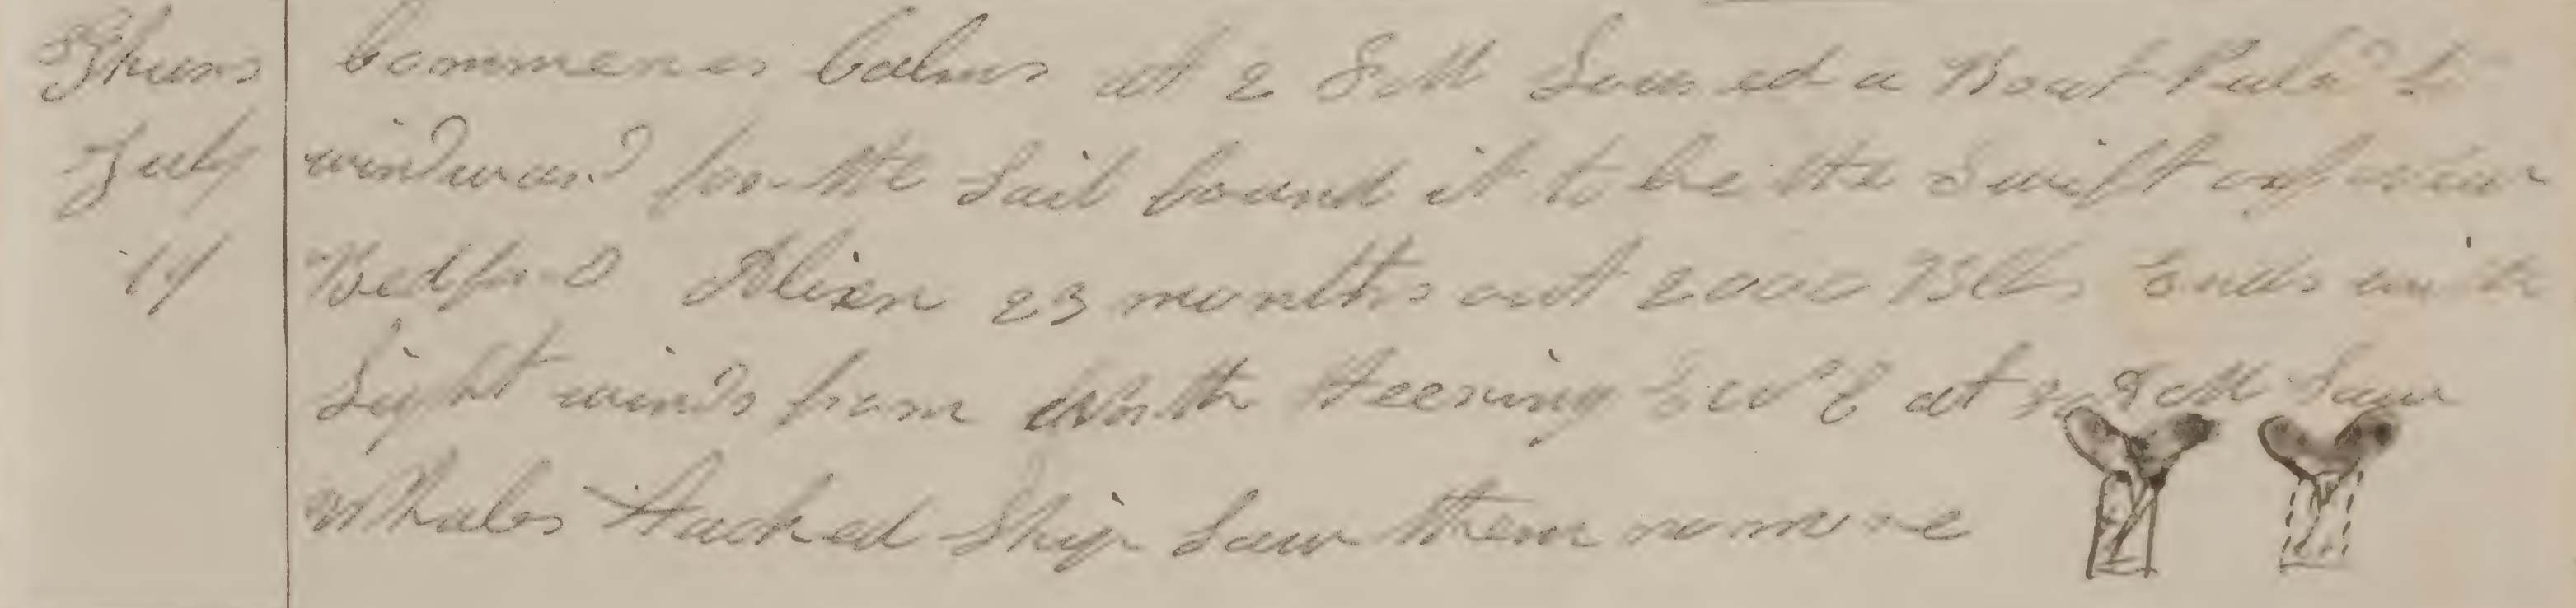 Thurs Commences Calms at 2 P M Lowered a Boat Puld to
July windward for the Sail found it to be the Swift of New
Bedford 23 months out 2000 Bbls Ends with
Light winds from North Steering at P M Saw
Whales tacked Ship Saw them no more